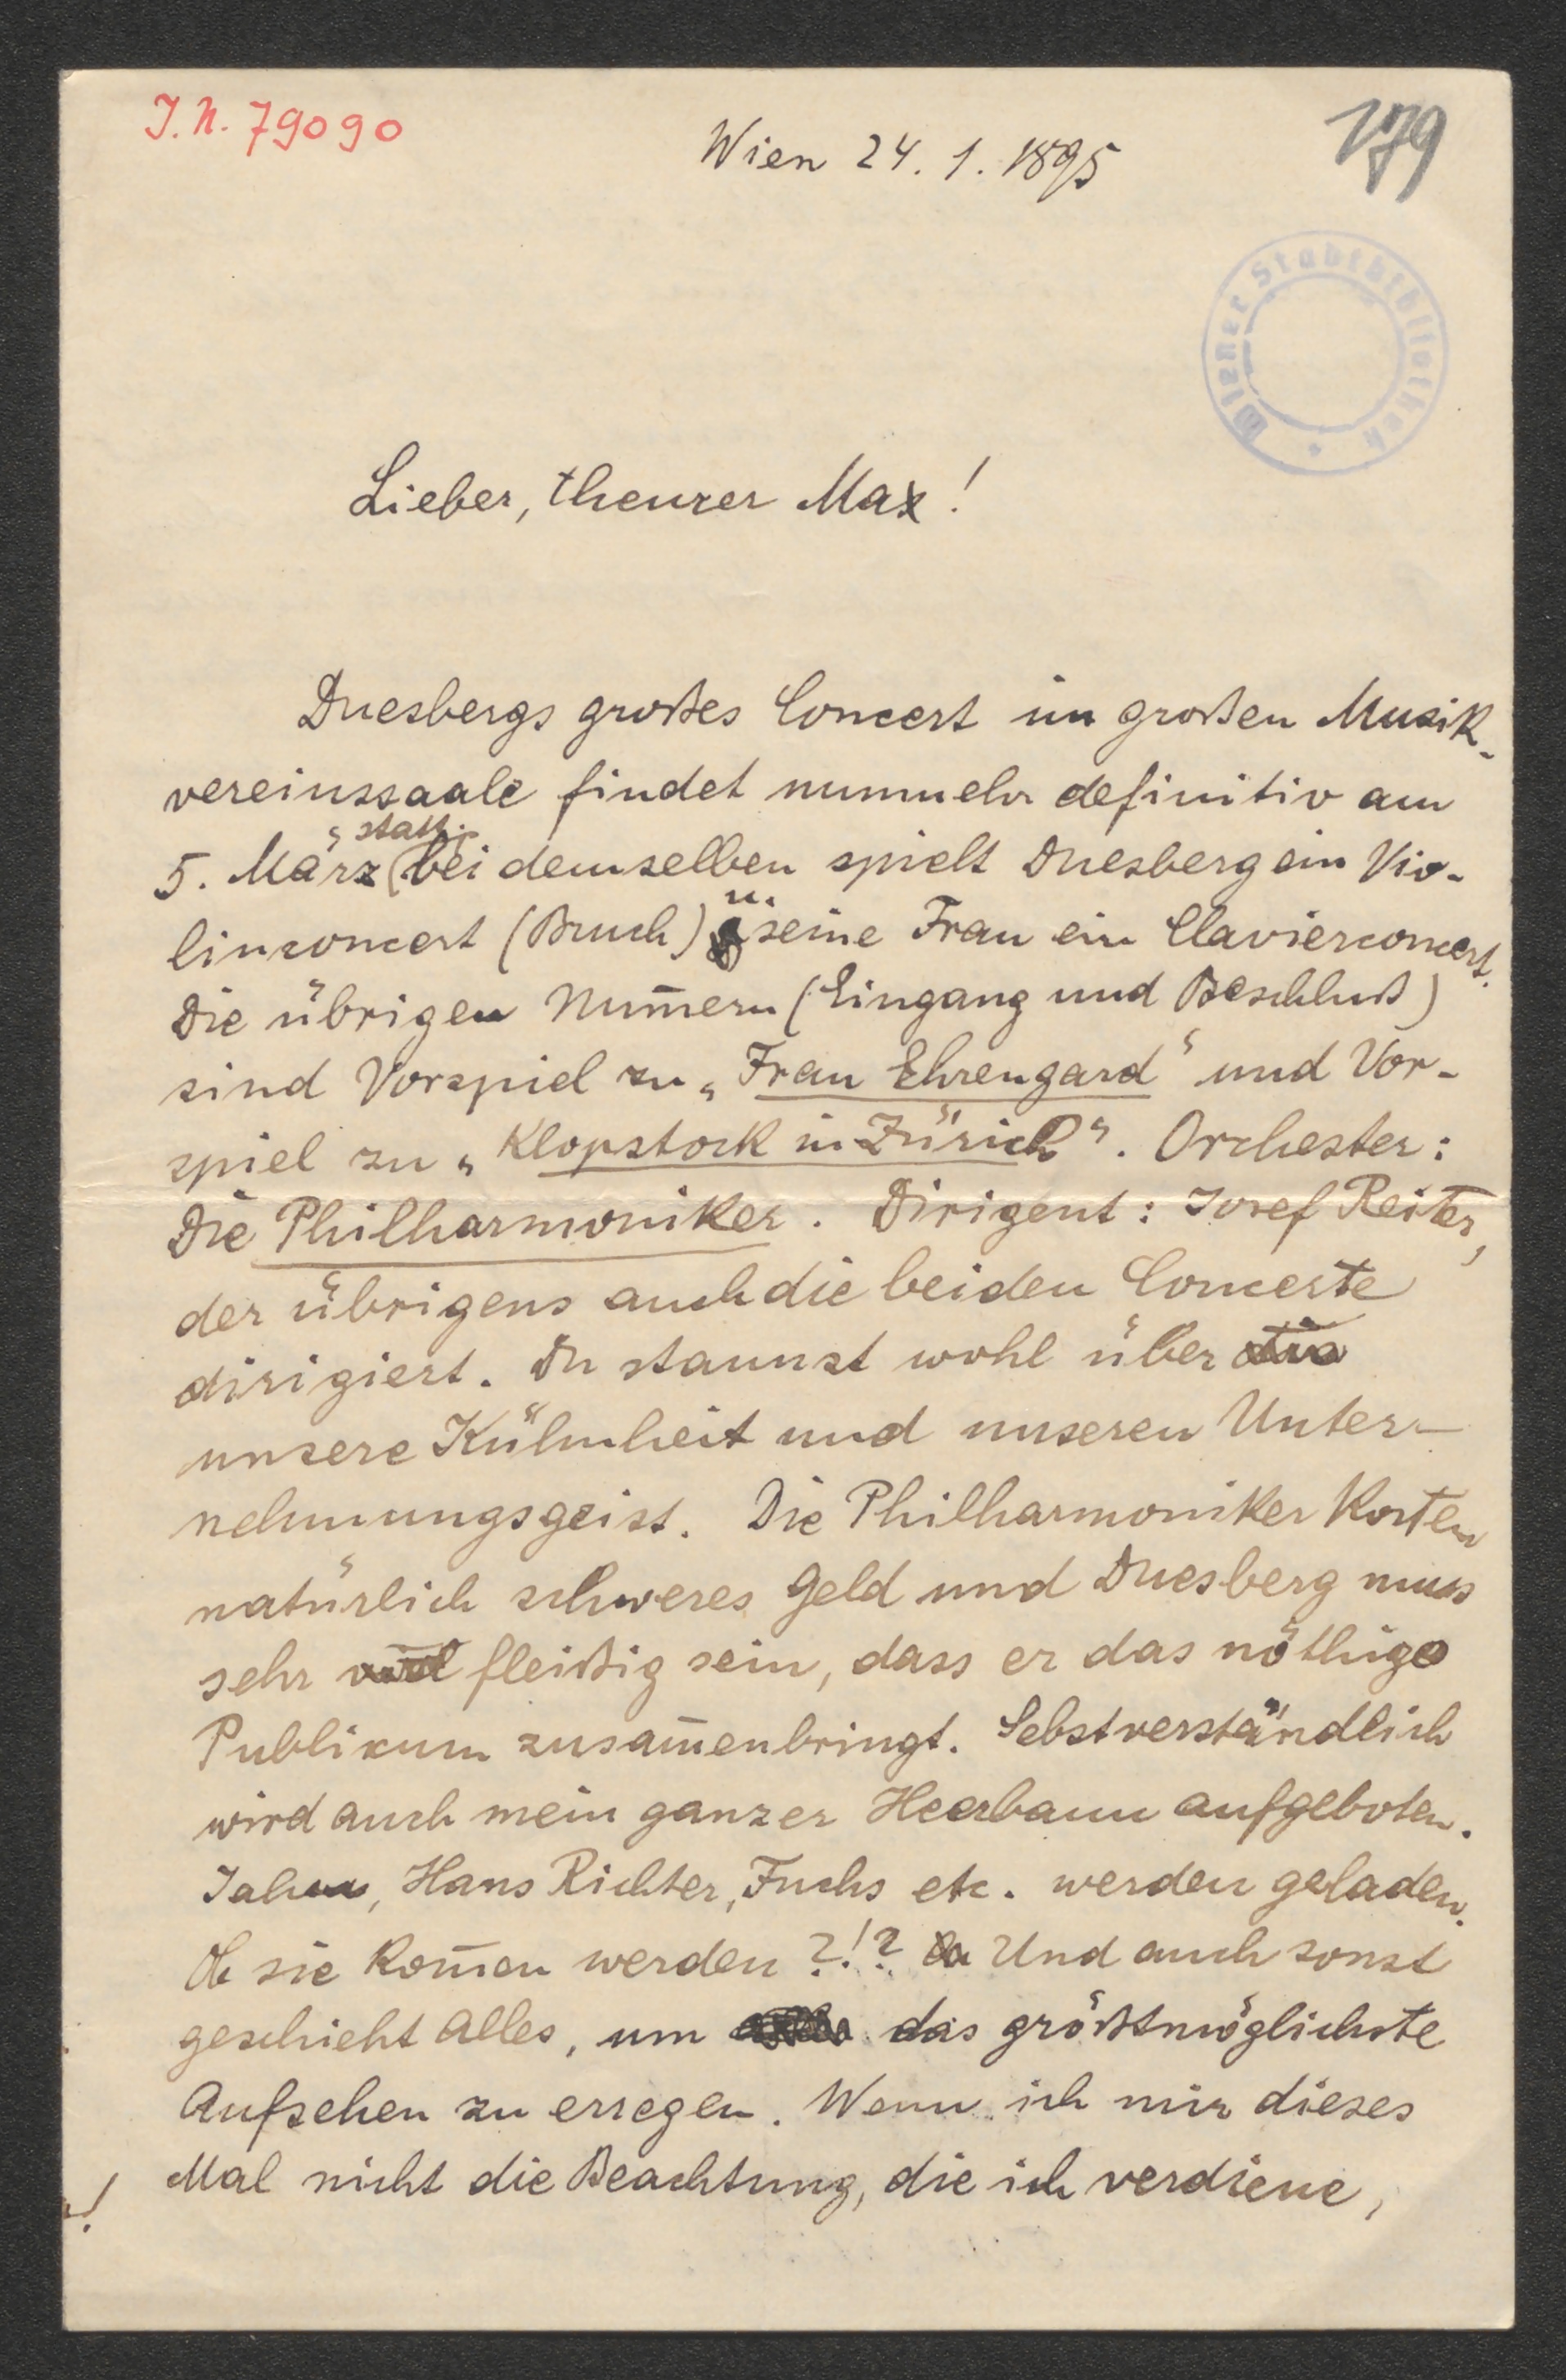 I.N. 79090
179
Wien 24. 1. 1895
Wiener Stadtbibliothek
Lieber, theurer Max!
Duesbergs großes Concert im großen Musik-
vereinssaale findet nunmehr definitiv am
statt;
5. März bei demselben spielt Duesberg ein Vio-
linconcert (Bruch) u. seine Frau ein Clavierconcert.
Die übrigen Num̅ern (Eingang und Beschluß)
sind Vorspiel zu „Frau Ehrengard“ und Vor-
spiel zu „Klopstock in Zürich“. Orchester:
Die Philharmoniker. Dirigent: Josef Reiter,
der übrigens auch die beiden Concerte
dirigiert. Du staunst wohl über die
unsere Kühnheit und unseren Unter-
nehmungsgeist. Die Philharmoniker kosten
natürlich schweres Geld und Duesberg muss
sehr viel fleißig sein, dass er das nöthige
Publikum zusam̅enbringt. Sebstverständlich
wird auch mein ganzer Heerbann aufgeboten.
Jahn, Hans Richter, Fuchs etc. werden geladen.
Ob sie kom̅en werden ?!? Und auch sonst
geschieht Alles, um das größtmöglichste
Aufsehen zu erregen. Wenn ich mir dieses
Mal nicht die Beachtung, die ich verdiene,